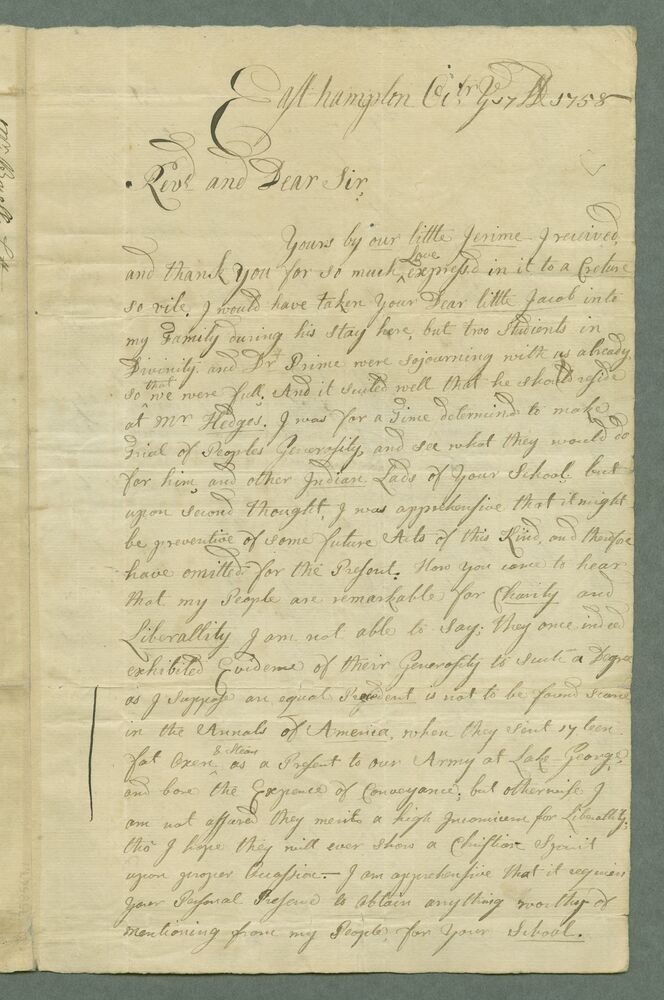 East hampton Octr. ye 17th 1758
Revd. and Dear Sir,
Yours by our little Jerime I received,
and thank You for so much Love express'd in it to a Creture
so vile. I would have taken Your Dear little Jacob into
my Family during his stay here, but two Students in
Divinity and Dr. Prime were sojourning with us already
so that we were full. And it suited well that he should reside
at Mr Hedges. I was for a Time determin'd to make
Trial of Peoples Generosity, and see what they would do
for him, and other Indian Lads of Your School, but
upon second thought, I was apprehensive that it might
be preventive of some future Acts of this Kind, and therefore
have omitted for the Present. How you came to hear
that my People are remarkable for Charity and
Liberallity I am not able to say; they once indeed
exhibited Evidence of their Generosity to such a Degree
as I suppose an equal Precedent is not to be found scarce
in the Annals of America, when they sent 17 teen
fat Oxen & Stears as a Present to our Army at Lake George,
and bore the Expence of Conveyance; but otherwise I
am not assured they merit a high Incomium for Liberallity;
tho' I hope they will ever show a Christian Spirit
upon proper Occassion. — I am apprehensive that it requires
your Personal Presence to obtain anything worthy of
mentioning from my People, for Your School.